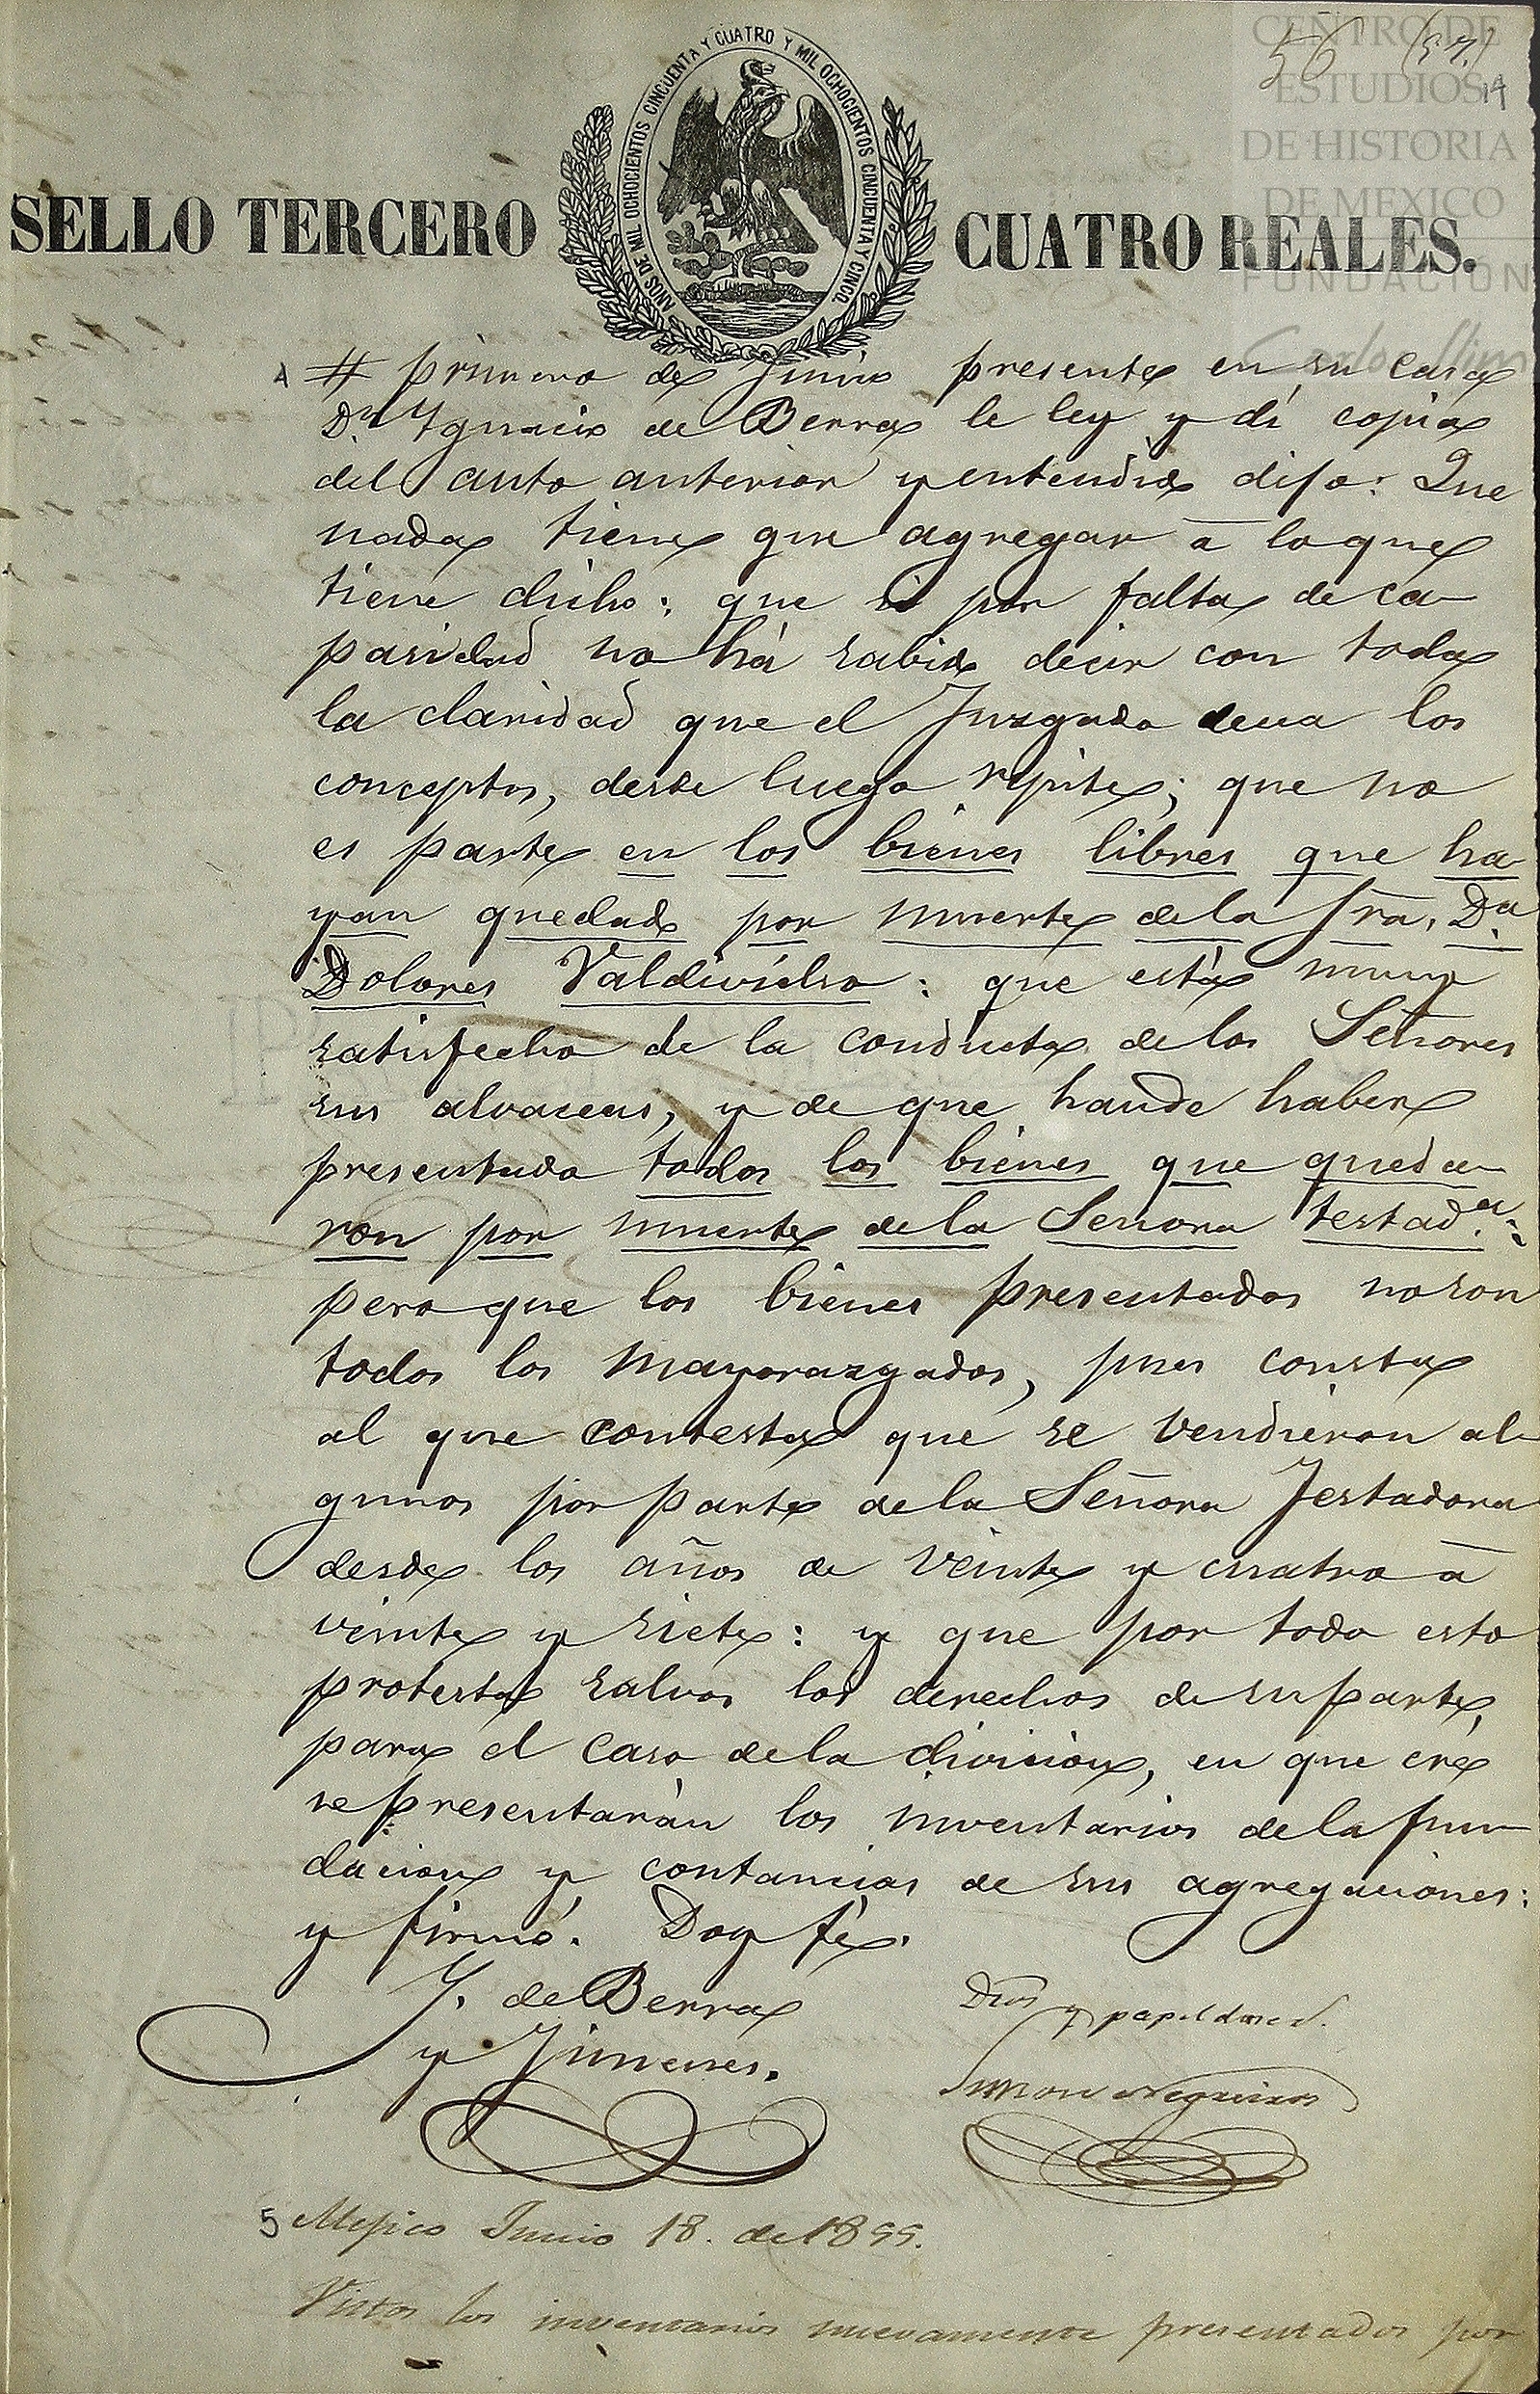 CENTRO DE
ESTUDIOS
DE HISTORIA
DE MEXICO
FUNDACION
Carlos Slim
56 (57.)
19
AÑOS DE MIL OCHOCIENTOS CINCUENTA Y CUATRO Y MIL OCHOCIENTOS CINCUENTA Y CINCO.
SELLO TERCERO CUATRO REALES.
# primero de Junio presente en su casa
Dn. Ygnacio de Berra le ley y dí copia
del auto anterior y entendido dijo: Que
nada tiene que agregar á lo que
tiene dicho: que si por falta de ca-
pasidad no há sabido decir con toda
la claridad que el Juzgado decea los
conceptos, desde luego repite; que no
es parte en los bienes libres que ha-
yan quedado por muerte de la Sra. Da.
Dolores Valdivielso: que está muy
satisfecho de la conducta de los Señores
sus alvaceas, y de que hande haber
presentado todos los bienes que queda-
ron por muerte de la Señora testada.:
pero que los bienes presentados no son
todos los mayorazgados, pues consta
al que contesta que se vendieron al-
gunos por parte de la Señora Testadora
desde los años de veinte y cuatro á
veinte y siete: y que por todo esto
protesta salvos los derechos de su parte,
para el caso de la division, en que cré
se presentarán los inventarios de la fun-
dacion y contancias de sus agregaciones:
y firmó. Doy fé.
Y. de Berra
y Jimenes.
Dros y papel dos rs.
Simon Negreiros
5 Mejico Junio 18. de 1855.
Vistos los inventarios nuevamente presentados por